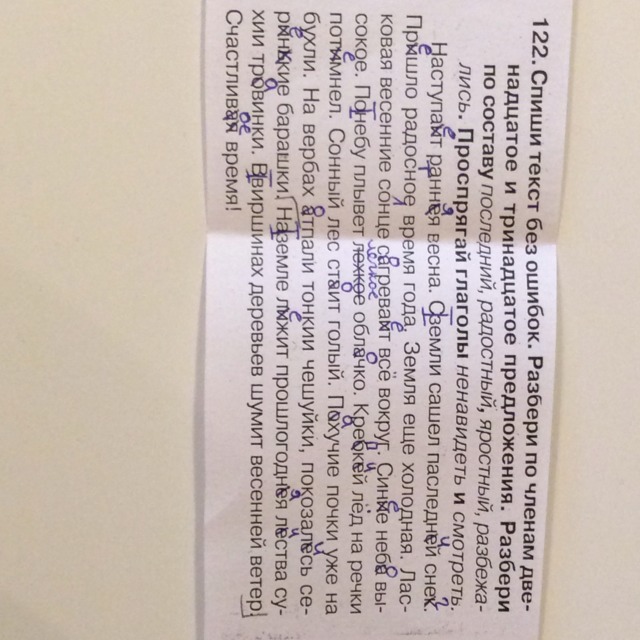 122. Спиши текст без ошибок. Разбери по членам две-
надцатое и тринадцатое предложения. Разбери
по составу последний, радостный, яростный, разбежа-
лись. Проспрягай глаголы ненавидеть и смотреть.
Наступаит ранняя весна. Сземли сашел паследней снек.
Пришло радосное время года. Земля еще холодная. Лас-
ковая весенние сонце сагреваит всё вокруг. Синие неба вы-
сокое. Понебу плывет лехкое облачко. Крепкей лёд на речки
потимнел. Сонный лес стаит голый. Пахучие почки уже на
бухли. На вербах атпали тонкии чешуйки, показались се-
ринкие барашки. Наземле лижит прошлогодняя лества су-
хии тровинки. Ввиршинах деревьев шумит весенней ветер!
Счастливая время!